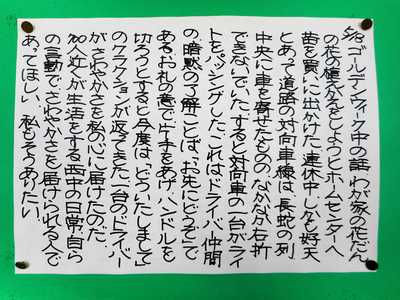 5/8 ゴールデンウィーク中の話 わが家の花だん
の花の植えかえをしようとホームセンターへ
苗を買いに出かけた。連休中、しかも好天
とあって道路の対向車線は長蛇の列
中央に車を寄せたものの、なかなか右折
できないでいた。すると対向車の一台がライ
トをパッシングした。これはドライバー仲間
の、暗黙の了解ことば、「お先にどうぞ」で
ある。お礼の意で片手をあげ、ハンドルを
切ろうとすると今度は、「どういたしまして」
のクラクションが返ってきた。一台のドライバー
がさわやかさを私の心に届けたのだ。
700人近くが生活をする西中の日常、自ら
の言動で、さわやかさを届けられる人で
あってほしい。私もそうありたい。